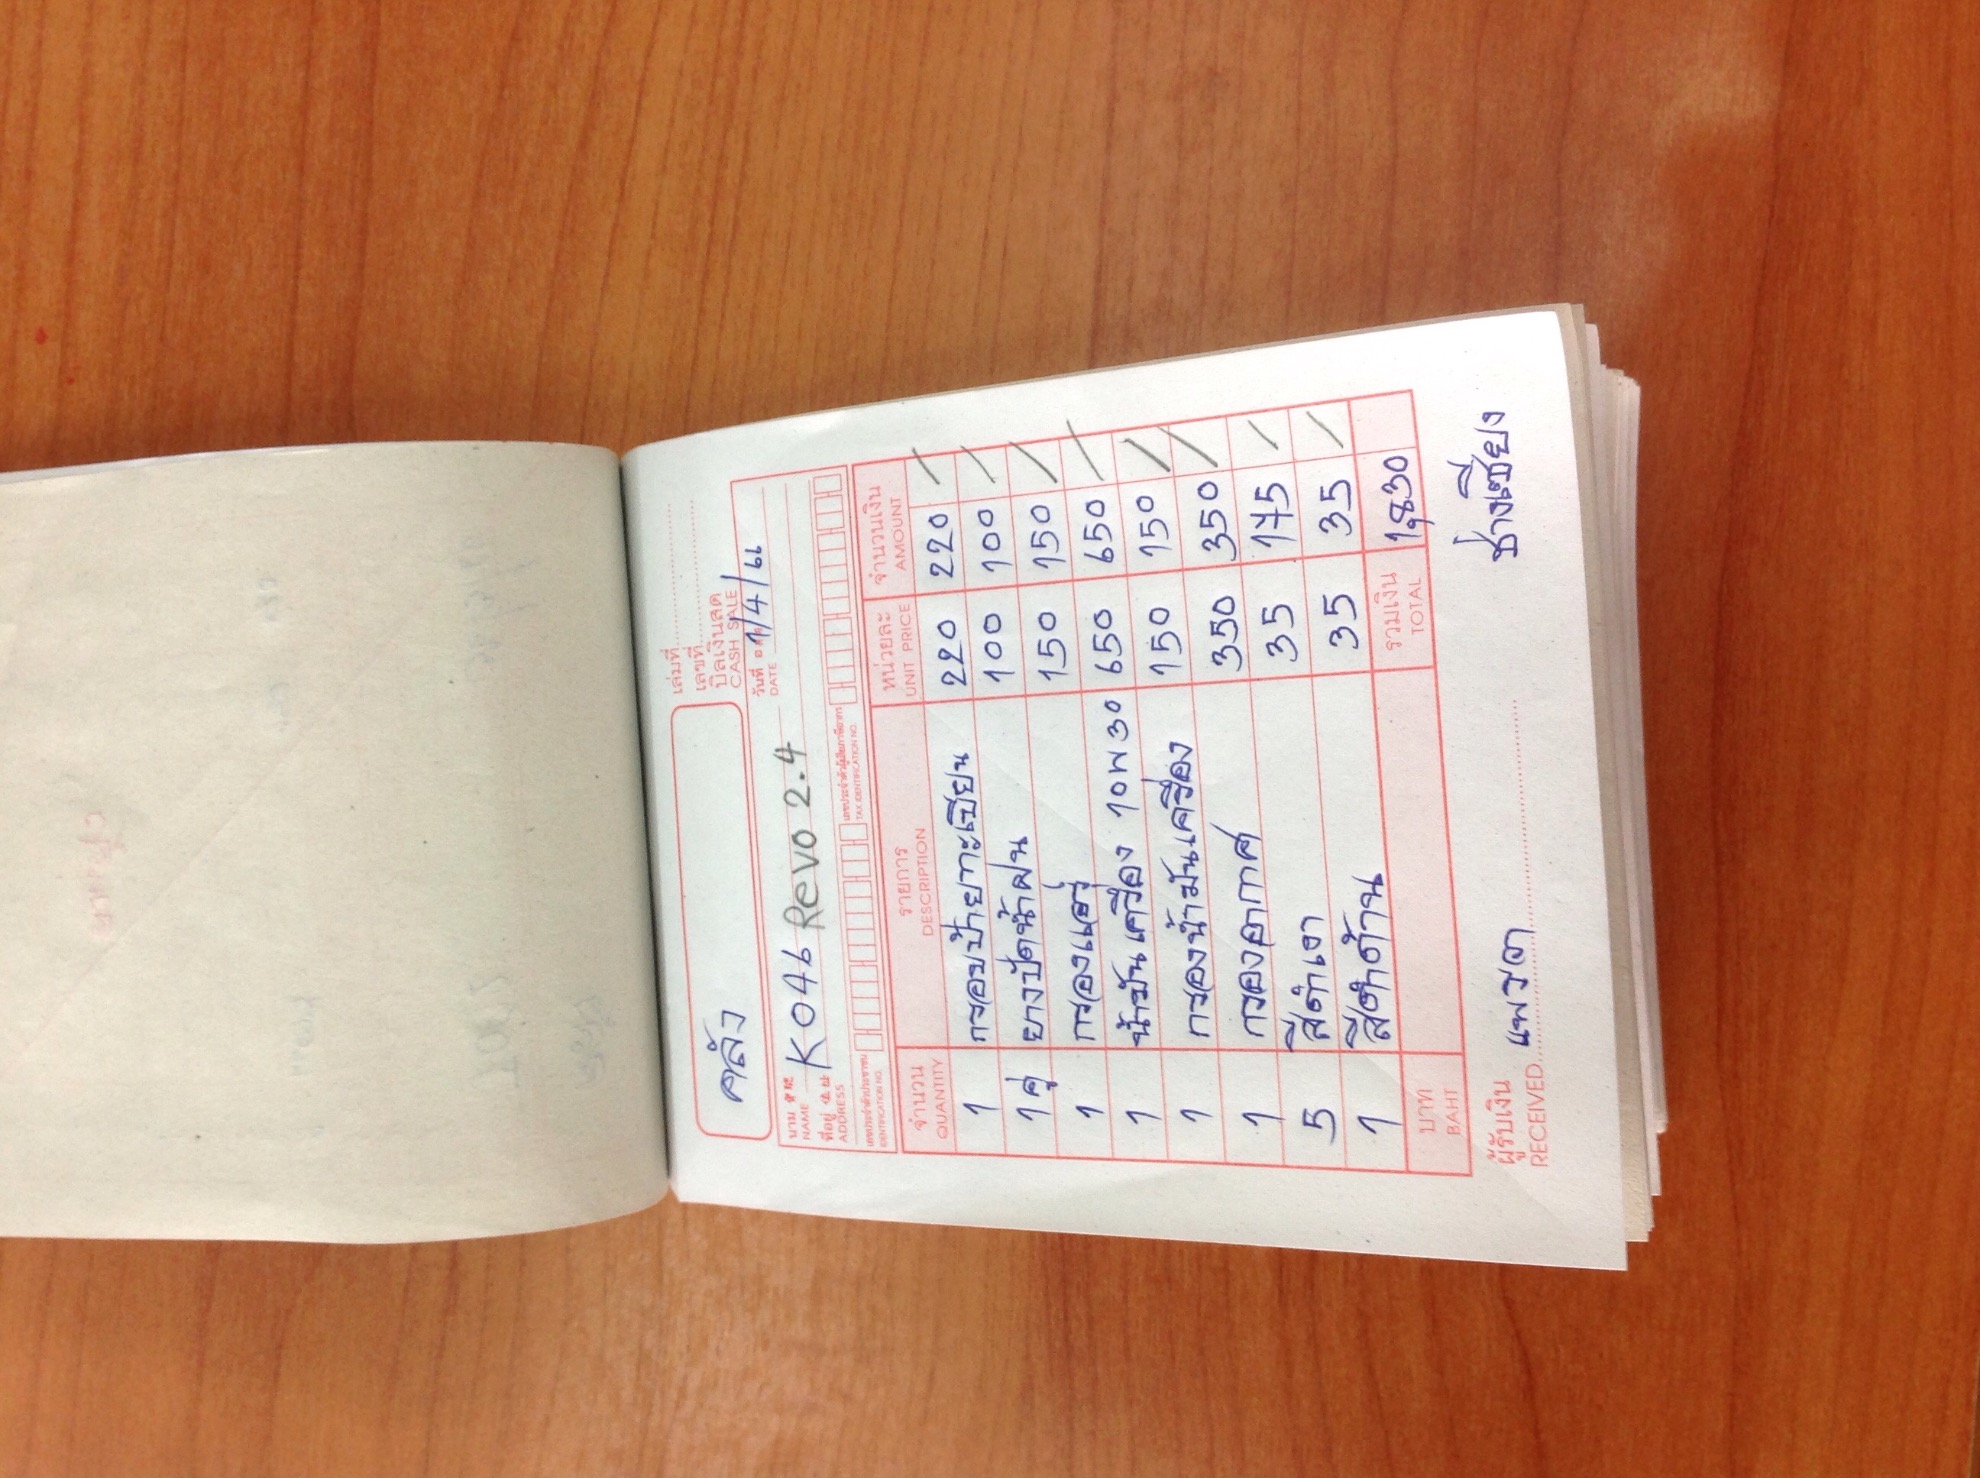 เล่มที่
เลขที่
บิลเงินสด
CASH SALE
คลัง
วันที่ 1/4/66
DATE
นาม K046 Revo 2.4
NAME
ที่อยู่
ADDRESS
เลขประจำตัวประชาชน เลขประจำตัวผู้เสียภาษีอากร
IDENTIFICATION NO. TAX IDENTIFICATION NO.
จำนวน รายการ หน่วยละ จำนวนเงิน
QUANTITY DESCRIPTION UNIT PRICE AMOUNT
1 กรอบป้ายทะเบียน 220 220
1 คู่ ยางปัดน้ำฝน 100 100
1 กรองแอร์ 150 150
1 น้ำมันเครื่อง 10W30 650 650
1 กรองน้ำมันเครื่อง 150 150
1 กรองอากาศ 350 350
5 สีดำเงา 35 175
1 สีดำด้าน 35 35
บาท รวมเงิน 1,830
BAHT TOTAL
ผู้รับเงิน แพรว ช่างเชียง
RECEIVED